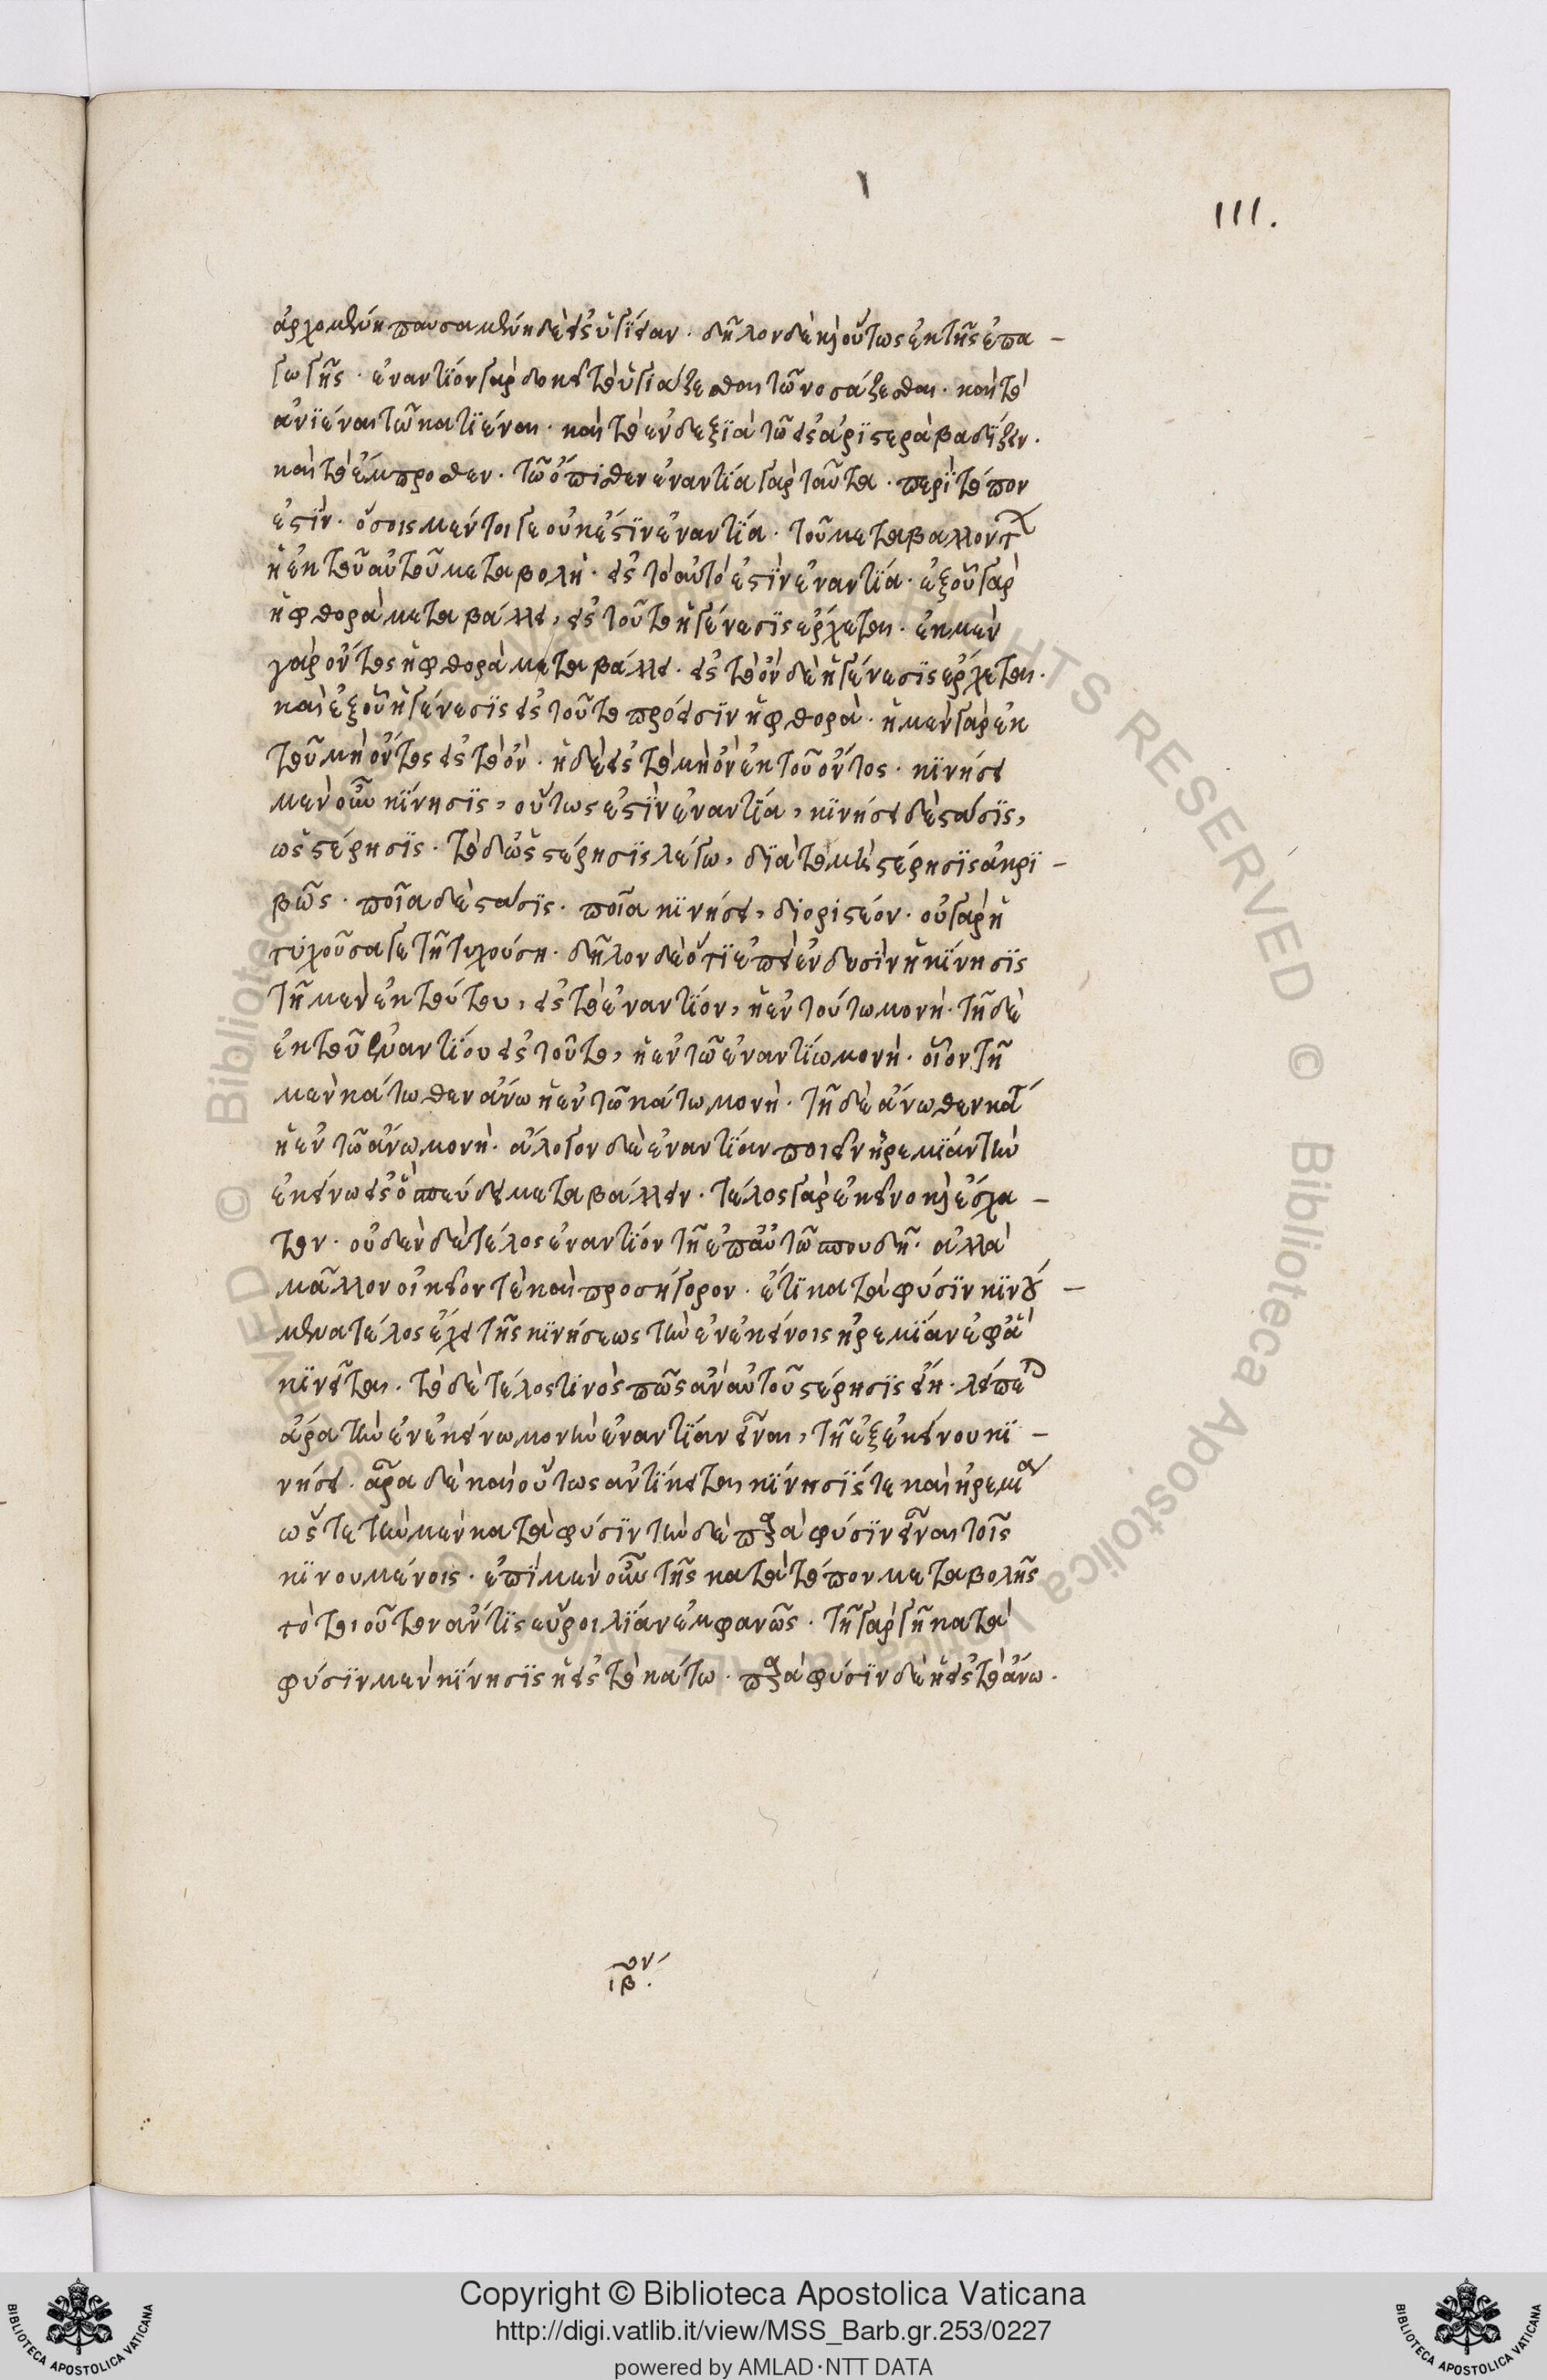 111.
ἀρχομένη παυσαμένη δὲ εἰς ὑγΐειαν· δῆλον δὲ κὶ οὕτως ἐκ τῆς ἐπα -
γωγῆς· ἐναντΐον γὰρ δοκεῖ τὸ ὑγιάζεσθαι τῶ νοσάζεσθαι· καὶ τὸ
ἀνϊέναι τῶ κατϊέναι· καὶ τὸ ἐν δεξϊὰ τῶ εἰς ἀρϊστερὰ βαδΐζειν·
καὶ τὸ ἔμπροσθεν· τῶ ὄπισθεν ἐναντΐα γὰρ ταῦτα· περὶ τόπον
ἐστΐν· ὅσοις μέντοι γε οὐκ ἐστΐν ἐναντΐα· τοῦ μεταβάλλοντ
ἡ ἐκ τοῦ αὐτοῦ μεταβολὴ· εἰς τὸ αὐτό ἐστϊν ἐναντΐα· ἐξ οὗ γὰρ
ἡ φθορὰ μεταβάλλει, εἰς τοῦτο ἡ γένεσϊς ἔρχεται· ἐκ μὲν
γὰρ ὄντος ἡ φθορὰ μεταβάλλει· εἰς τὸ ὂν δὲ ἡ γένεσϊς ἔρχεται·
καὶ ἐξ οὗ ἡ γένεσϊς εἰς τοῦτο πρόεισϊν ἡ φθορὰ· ἡ μὲν γὰρ ἐκ
τοῦ μὴ ὄντος εἰς τὸ ὂν· ἡ δὲ εἰς τὸ μὴ ὂν ἐκ τοῦ ὄντος· κϊνήσει
μὲν οὖν κΐνησϊς, οὕτως ἐστϊν ἐναντΐα, κϊνήσει δὲ στάσϊς,
ὡς στέρησϊς· τὸ δ ὡς στέρησϊς λέγω, δϊὰ τὸ μὴ στέρησϊς ἀκρϊ -
βῶς· ποῖα δὲ στάσϊς· ποῖα κϊνήσει, διοριστέον· οὐ γὰρ ἡ
τυχοῦσα γε τῆ τυχούση· δῆλον δὲ ὅτϊ ἐπεὶ ἐν δυσϊν ἡ κΐνησϊς
τῆ μὲν ἐκ τούτου, εἰς τὸ ἐναντΐον, ἡ ἐν τούτω μονὴ· τῆ δὲ
ἐκ τοῦ ἐναντΐου εἰς τοῦτο, ἡ ἐν τῶ ἐναντΐω μονὴ· οἷον τῆ
μὲν κάτωθεν ἄνω ἡ ἐν τῶ κάτω μονὴ· τῆ δὲ ἄνωθεν κάτ
ἡ ἐν τῶ ἄνω μονὴ· ἄλογον δὲ ἐναντΐαν ποιεῖν ἠρεμΐαν τὴν
ἐκείνω εἰς ὃ σπεύδει μεταβάλλειν· τέλος γὰρ ἐκεῖνο κὶ ἔσχα -
τον· οὐδὲν δὲ τέλος ἐναντΐον τῆ ἐπ αὐτῶ σπουδῆ· ἀλλὰ
μᾶλλον οἰκεῖον τὲ καὶ προσήγορον· ἔτϊ κατὰ φύσϊν κϊνού -
μενα τέλος ἔχει τῆς κϊνήσεως τὴν ἐν ἐκείνοις ἠρεμΐαν ἐφ ἃ
κϊνεῖται· τὸ δὲ τέλος τϊνὸς πῶς ἂν αὐτοῦ στέρησϊς εἴη·
ἄρα τὴν ἐν ἐκείνω μονὴν ἐναντΐαν εἶναι, τῆ ἐξ ἐκείνου κϊ -
νήσει· ἆρα δὲ καὶ οὕτως ἀντΐκειται κΐνησΐς τε καὶ ἠρεμία
ὥς τε τὴν μὲν κατὰ φύσϊν τὴν δὲ παρὰ φύσϊν εἶναι τοῖς
κϊνουμένοις· ἐπὶ μὲν οὖν τῆς κατὰ τόπον μεταβολῆς
τὸ τοιοῦτον ἄν τϊς εὕροι λΐαν ἐμφανῶς· τῆ γὰρ γῆ κατὰ
φύσϊν μὲν κΐνησϊς ἡ εἰς τὸ κάτω· παρὰ φύσϊν δὲ ἡ εἰς τὸ ἄνω·
ιβον
© Biblioteca Apostolica Vaticana ALL RIGHTS RESERVED
Copyright © Biblioteca Apostolica Vaticana
http://digi.vatlib.it/view/MSS_Barb.gr.253/0227
powered by AMLAD·NTT DATA
BIBLIOTECA APOSTOLICA VATICANA
BIBLIOTECA APOSTOLICA VATICANA